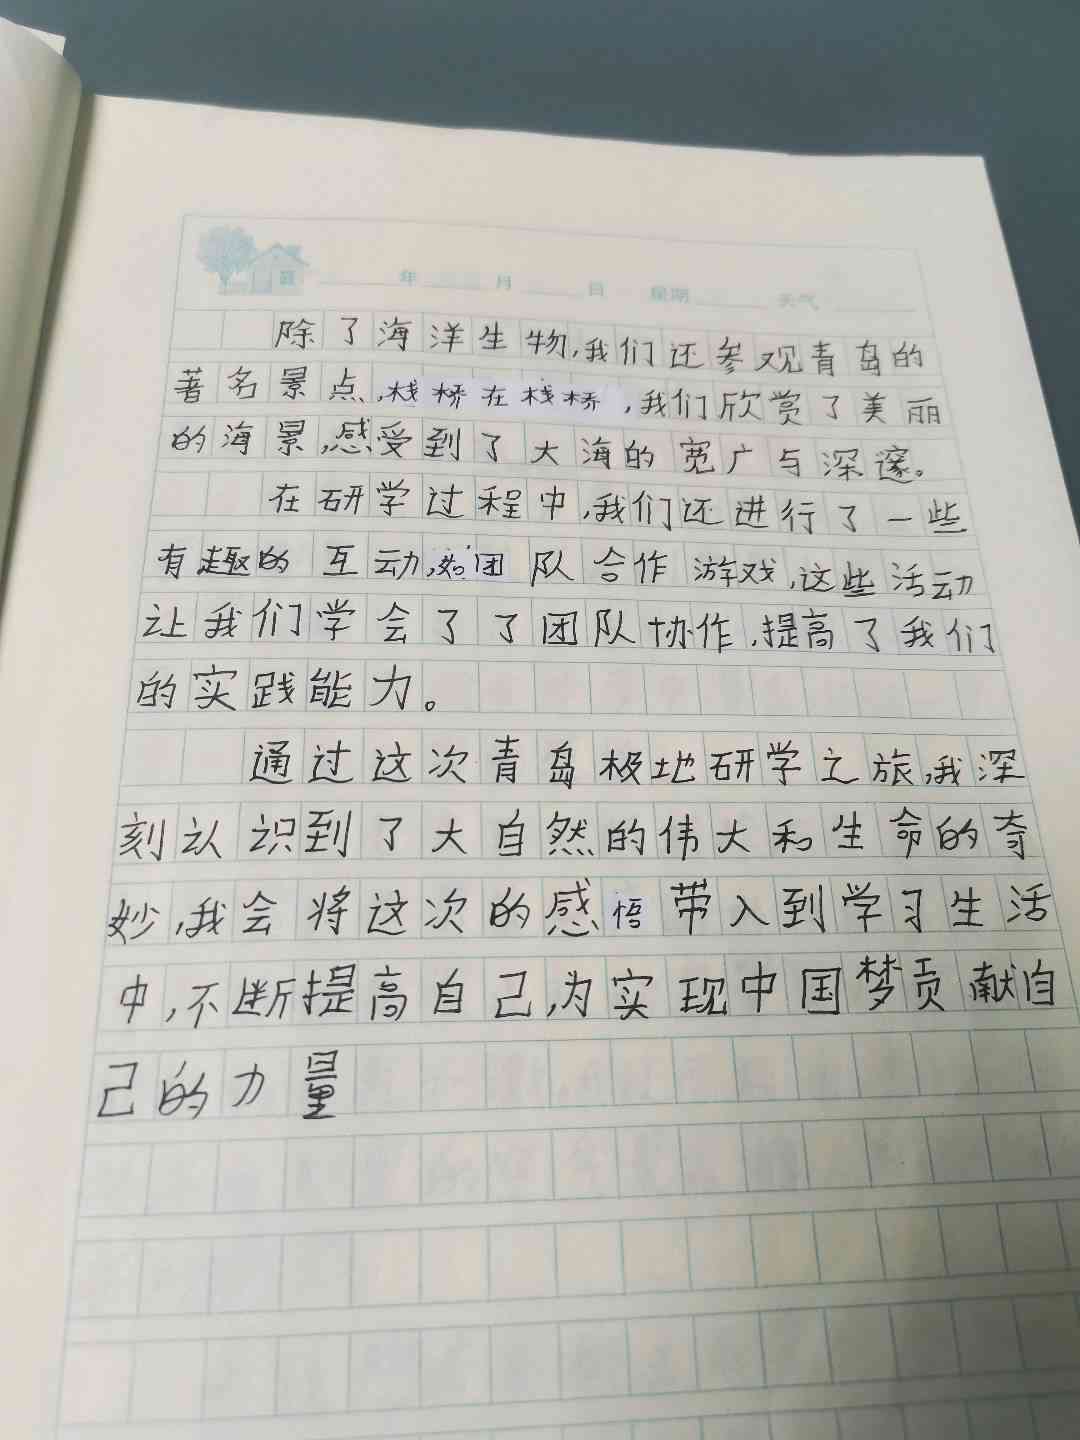 年 月 日 星期 天气
除了海洋生物,我们还参观青岛的
著名景点,栈桥在栈桥,我们欣赏了美丽
的海景,感受到了大海的宽广与深邃。
在研学过程中,我们还进行了一些
有趣的互动,如团队合作游戏,这些活动
让我们学会了了团队协作,提高了我们
的实践能力。
通过这次青岛极地研学之旅,我深
刻认识到了大自然的伟大和生命的奇
妙,我会将这次的感悟带入到学习生活
中,不断提高自己,为实现中国梦贡献自
己的力量